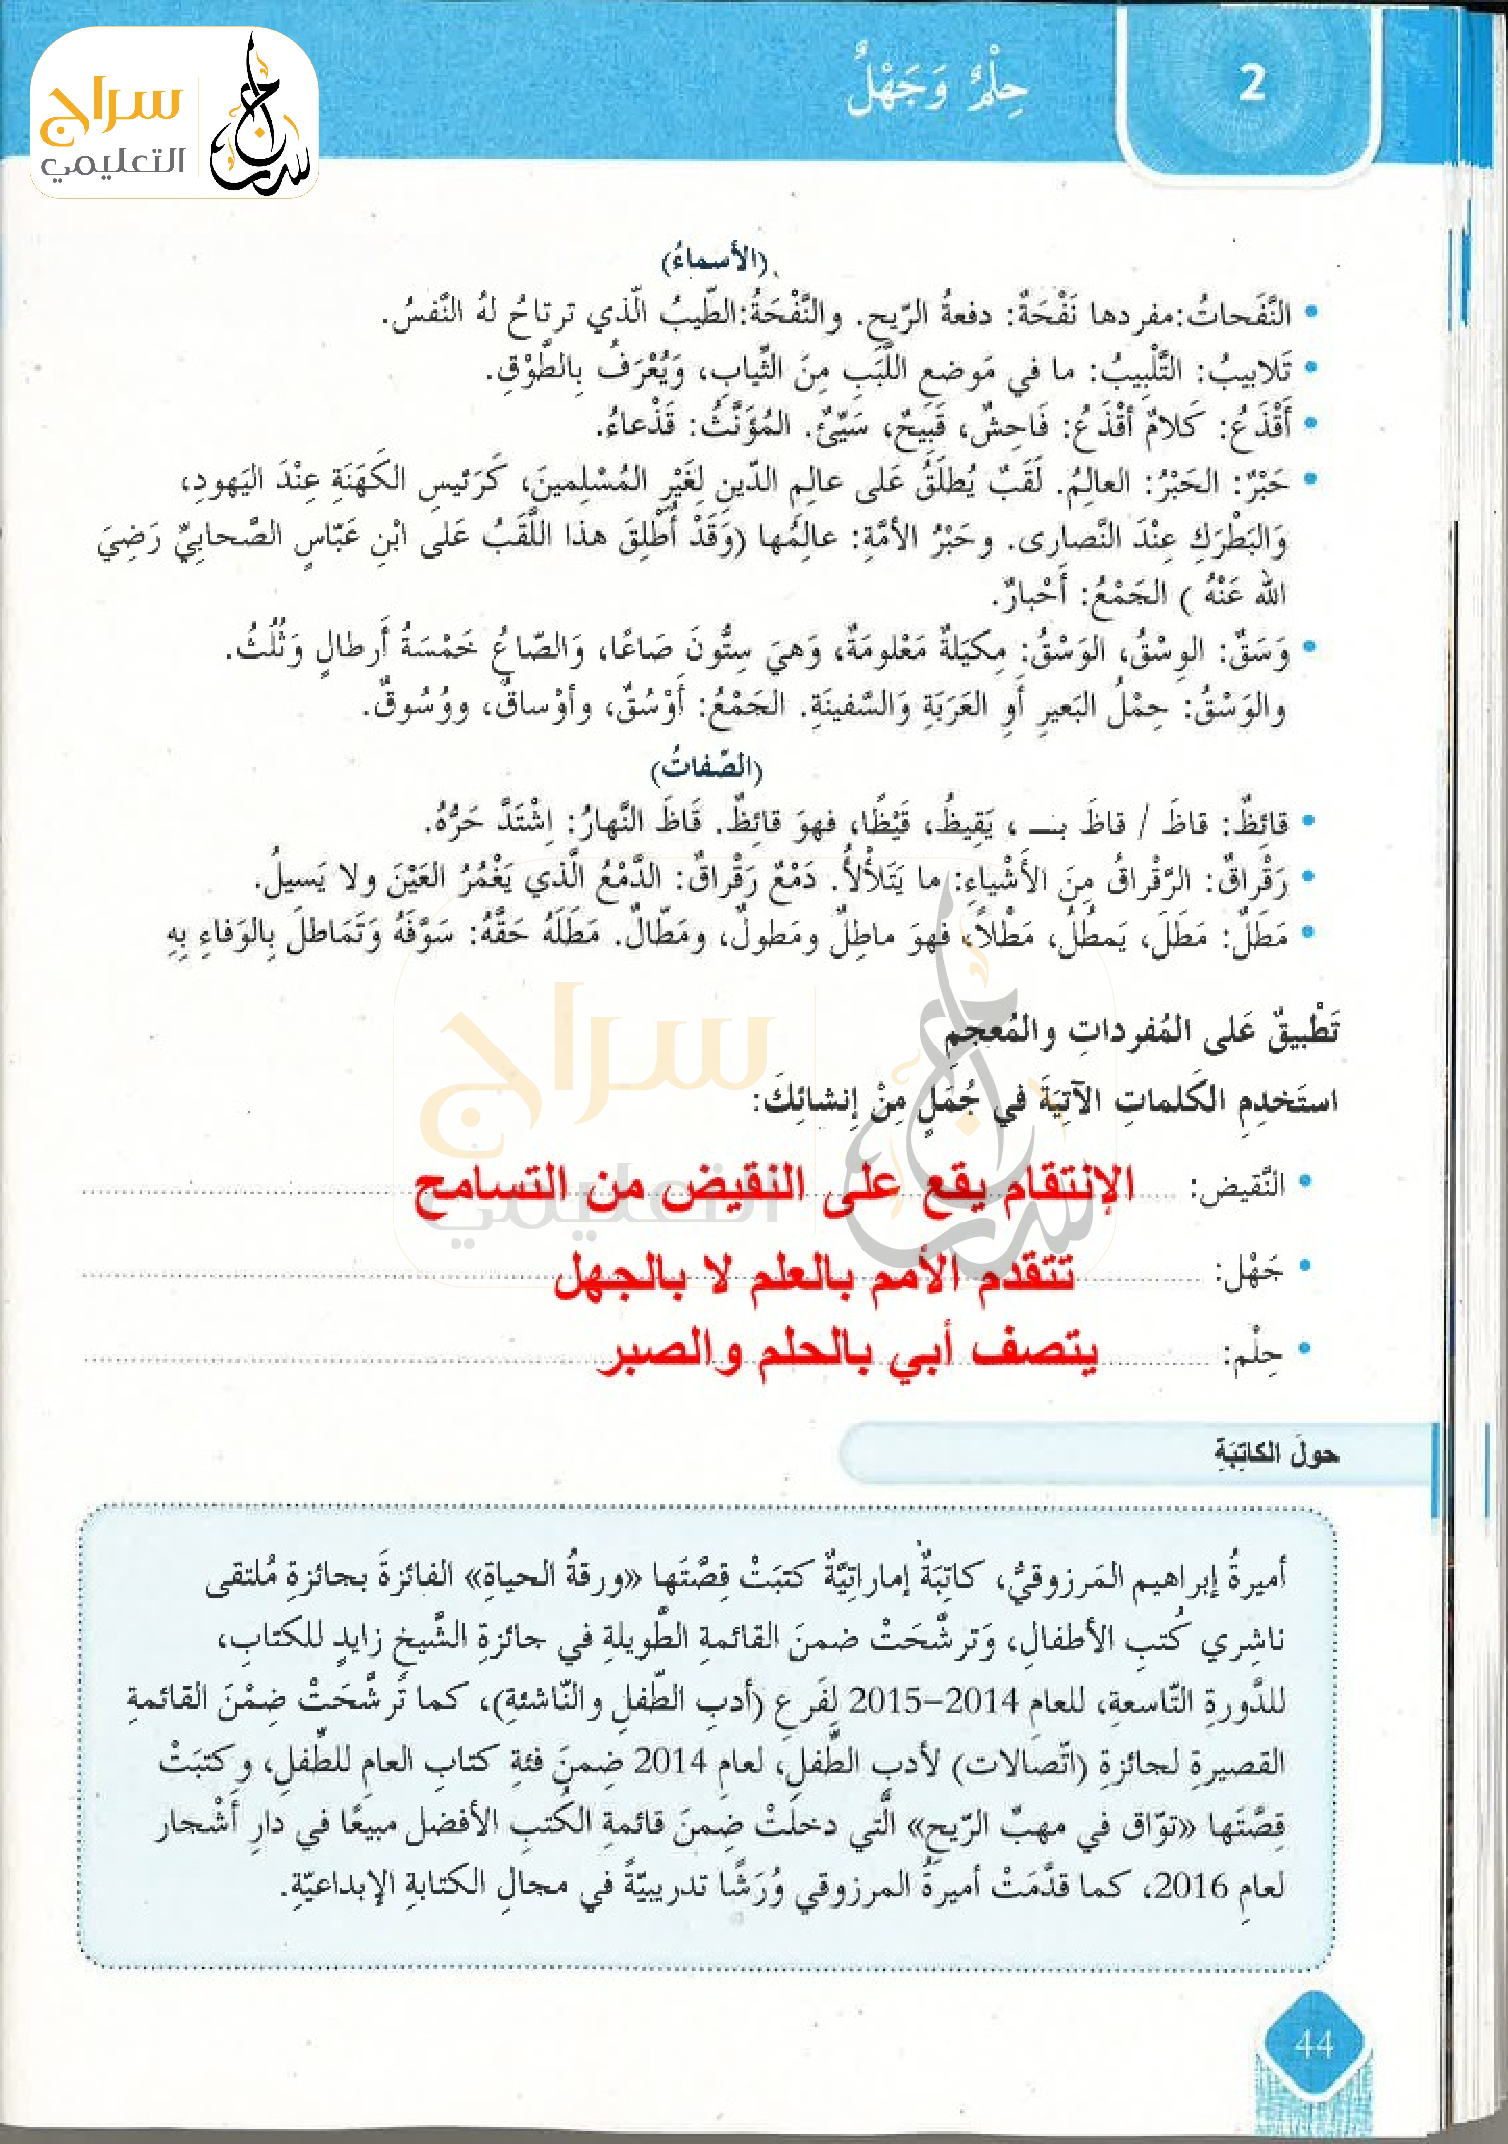 سراج
التعليمي
حِلْمٌ وَجَهْلٌ
2
(الأسماءُ)
• النَّفَحاتُ:مفردها نَفْحَةٌ: دفعةُ الرّيحِ. والنَّفْحَةُ:الطّيبُ الّذي ترتاحُ لهُ النَّفسُ.
• تَلابيبُ: التَّلْبِيبُ: ما في مَوضعِ اللَّبَبِ مِنَ الثِّيابِ، وَيُعْرَفُ بِالطَّوْقِ.
• أَقْذَعُ: كَلامٌ أقْذَعُ: فَاحِشٌ، قَبِيحٌ، سَيِّئٌ. المُؤَنَّثُ: قَذْعاءُ.
• حَبْرٌ: الحَبْرُ: العالِمُ. لَقَبٌ يُطلَقُ عَلى عالِمِ الدّينِ لِغَيْرِ المُسْلِمينَ، كَرَئيسِ الكَهَنَةِ عِنْدَ اليَهودِ،
وَالبَطْرَكِ عِنْدَ النَّصارى. وحَبْرُ الأمَّةِ: عالِمُها (وَقَدْ أُطْلِقَ هذا اللَّقَبُ عَلى ابْنِ عَبّاسٍ الصَّحابِيِّ رَضِيَ
الله عَنْهُ ) الجَمْعُ: أَحْبارٌ.
• وَسَقٌ: الوِسْقُ، الوَسْقُ: مِكيَلةٌ مَعْلومَةٌ، وَهيَ سِتُّونَ صَاعًا، وَالصّاعُ خَمْسَةُ أَرطالٍ وَثُلُثُ.
والوَسْقُ: حِمْلُ البَعيرِ أَوِ العَرَبَةِ وَالسَّفينَةِ. الجَمْعُ: أَوْسُقٌ، وأوْساقٌ، ووُسُوقٌ.
(الصّفاتُ)
• قائِظٌ: قاظَ / قاظَ بـ ، يَقِيظُ، قَيْظًا، فهوَ قائِظٌ. قَاظَ النَّهارُ: اِشْتَدَّ حَرُّهُ.
• رَقْراقٌ: الرَّقْراقُ مِنَ الأَشْياءِ: ما يَتَلأْلأُ. دَمْعٌ رَقْراقٌ: الدَّمْعُ الَّذي يَغْمُرُ العَيْنَ ولا يَسيلُ.
• مَطَلٌ: مَطَلَ، يَمطُلُ، مَطْلاً، فهوَ ماطِلٌ ومَطولٌ، ومَطّالٌ. مَطَلَهُ حَقَّهُ: سَوَّفَهُ وَتَمَاطلَ بِالوَفاءِ بِهِ
تَطْبيقٌ عَلى المُفرداتِ والمُعجَمِ
استَخدِمِ الكَلماتِ الآتِيَةَ في جُمَلٍ مِنْ إنشائِكَ:
• النَّقيض: الإنتقام يقع على النقيض من التسامح
• جَهْل: تتقدم الأمم بالعلم لا بالجهل
• حِلْم: يتصف أبي بالحلم والصبر
حولَ الكاتِبَةِ
أميرةُ إبراهيم المَرزوقيُّ، كاتِبَةٌ إماراتِيَّةٌ كتبَتْ قِصَّتَها «ورقةُ الحياةِ» الفائزةَ بجائزةِ مُلتقى
ناشِري كُتبِ الأطفالِ، وَترشَّحَتْ ضمنَ القائمةِ الطَّويلةِ في جائزةِ الشَّيخِ زايدٍ للكتابِ،
للدَّورةِ التّاسعةِ، للعام 2014–2015 لِفَرعِ (أدبِ الطّفلِ والنّاشئةِ)، كما تَرشَّحَتْ ضِمْنَ القائمةِ
القصيرةِ لجائزةِ (اتّصالات) لأدبِ الطّفلِ، لعامِ 2014 ضِمنَ فئةِ كتابِ العامِ للطّفلِ، وكتبَتْ
قِصَّتَها «توّاق في مهبِّ الرّيحِ» الَّتي دخلَتْ ضِمنَ قائمةِ الكُتبِ الأفضل مبيعًا في دارِ أشْجار
لعامِ 2016، كما قدَّمَتْ أميرةُ المرزوقي وُرَشًا تدريبيّةً في مجالِ الكتابةِ الإبداعيّةِ.
44